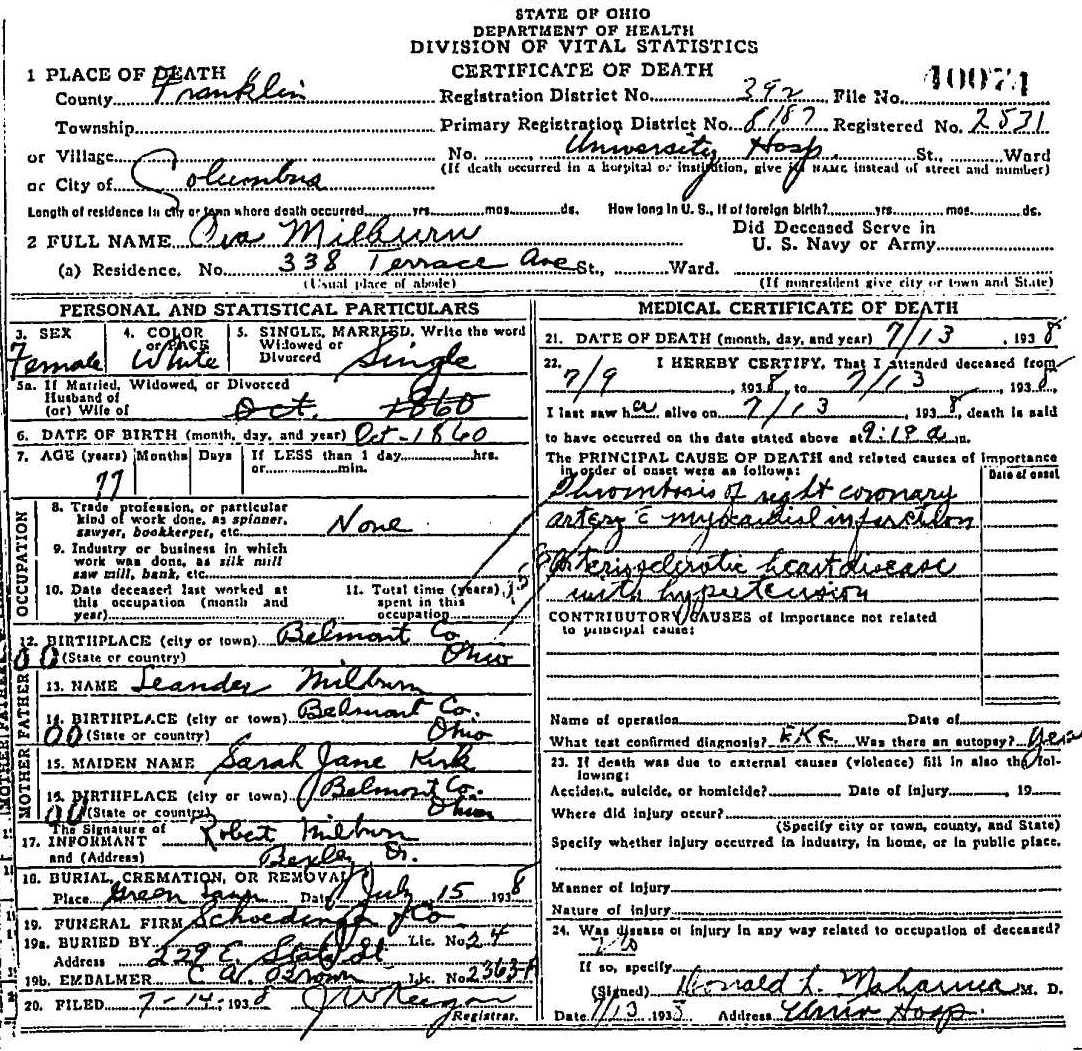 STATE OF OHIO
DEPARTMENT OF HEALTH
DIVISION OF VITAL STATISTICS
CERTIFICATE OF DEATH
1 PLACE OF DEATH
County Franklin Registration District No. 392 File No. 40071
Township Primary Registration District No. 8187 Registered No. 2531
or Village No. University Hosp. St., Ward
or City of Columbus (If death occurred in a hospital or institution, give its NAME instead of street and number)
Length of residence in city or town where death occurred yrs. mos. ds. How long in U. S., if of foreign birth? yrs. mos. ds.
2 FULL NAME Milburn Did Deceased Serve in
U. S. Navy or Army
(a) Residence. No. 338 Terrace Ave St., Ward.
(Usual place of abode) (If nonresident give city or town and State)
PERSONAL AND STATISTICAL PARTICULARS
3. SEX 4. COLOR or RACE 5. SINGLE, MARRIED, Write the word
Widowed or
Divorced
Female White Single
5a. If Married, Widowed, or Divorced
Husband of
(or) Wife of Oct. 1860
6. DATE OF BIRTH (month, day, and year) Oct - 1860
7. AGE (years) Months Days If LESS than 1 day hrs.
or min.
77
OCCUPATION
8. Trade, profession, or particular
kind of work done, as spinner,
sawyer, bookkeeper, etc. None
9. Industry or business in which
work was done, as silk mill
saw mill, bank, etc.
10. Date deceased last worked at
this occupation (month and
year)
11. Total time (years)
spent in this
occupation
12. BIRTHPLACE (city or town) Belmont Co.
00 (State or country) Ohio
FATHER
13. NAME Leander Milburn
14. BIRTHPLACE (city or town) Belmont Co.
00 (State or country) Ohio
MOTHER
15. MAIDEN NAME Sarah Jane Kirk
16. BIRTHPLACE (city or town) Belmont Co.
00 (State or country) Ohio
17. The Signature of
INFORMANT Robert Milburn
and (Address) Bexley O.
18. BURIAL, CREMATION, OR REMOVAL
Place Green Lawn Date July 15 1938
19. FUNERAL FIRM Schoedinger & Co
19a. BURIED BY Lic. No 24
Address 229 E State St
19b. EMBALMER C A Brown Lic. No. 2363-A
20. FILED 7-14-1938
Registrar.
MEDICAL CERTIFICATE OF DEATH
21. DATE OF DEATH (month, day, and year) 7/13, 1938
22. I HEREBY CERTIFY, That I attended deceased from
7/9, 1938, to 7/13, 1938,
I last saw h alive on 7/13, 1938, death is said
to have occurred on the date stated above at 9:19 a m.
The PRINCIPAL CAUSE OF DEATH and related causes of importance
in order of onset were as follows: Date of onset
Thrombosis of right coronary
artery c̄ myocardial infarction
Arteriosclerotic heart disease
with hypertension
CONTRIBUTORY CAUSES of importance not related
to principal cause:
Name of operation Date of
What test confirmed diagnosis? EKG. Was there an autopsy? yes
23. If death was due to external causes (violence) fill in also the fol-
lowing:
Accident, suicide, or homicide? Date of injury , 19
Where did injury occur?
(Specify city or town, county, and State)
Specify whether injury occurred in industry, in home, or in public place.
Manner of injury
Nature of injury
24. Was disease or injury in any way related to occupation of deceased?
No
If so, specify
(Signed) Donald L. M. D.
Date 7/13 1938 Address Univ Hosp.